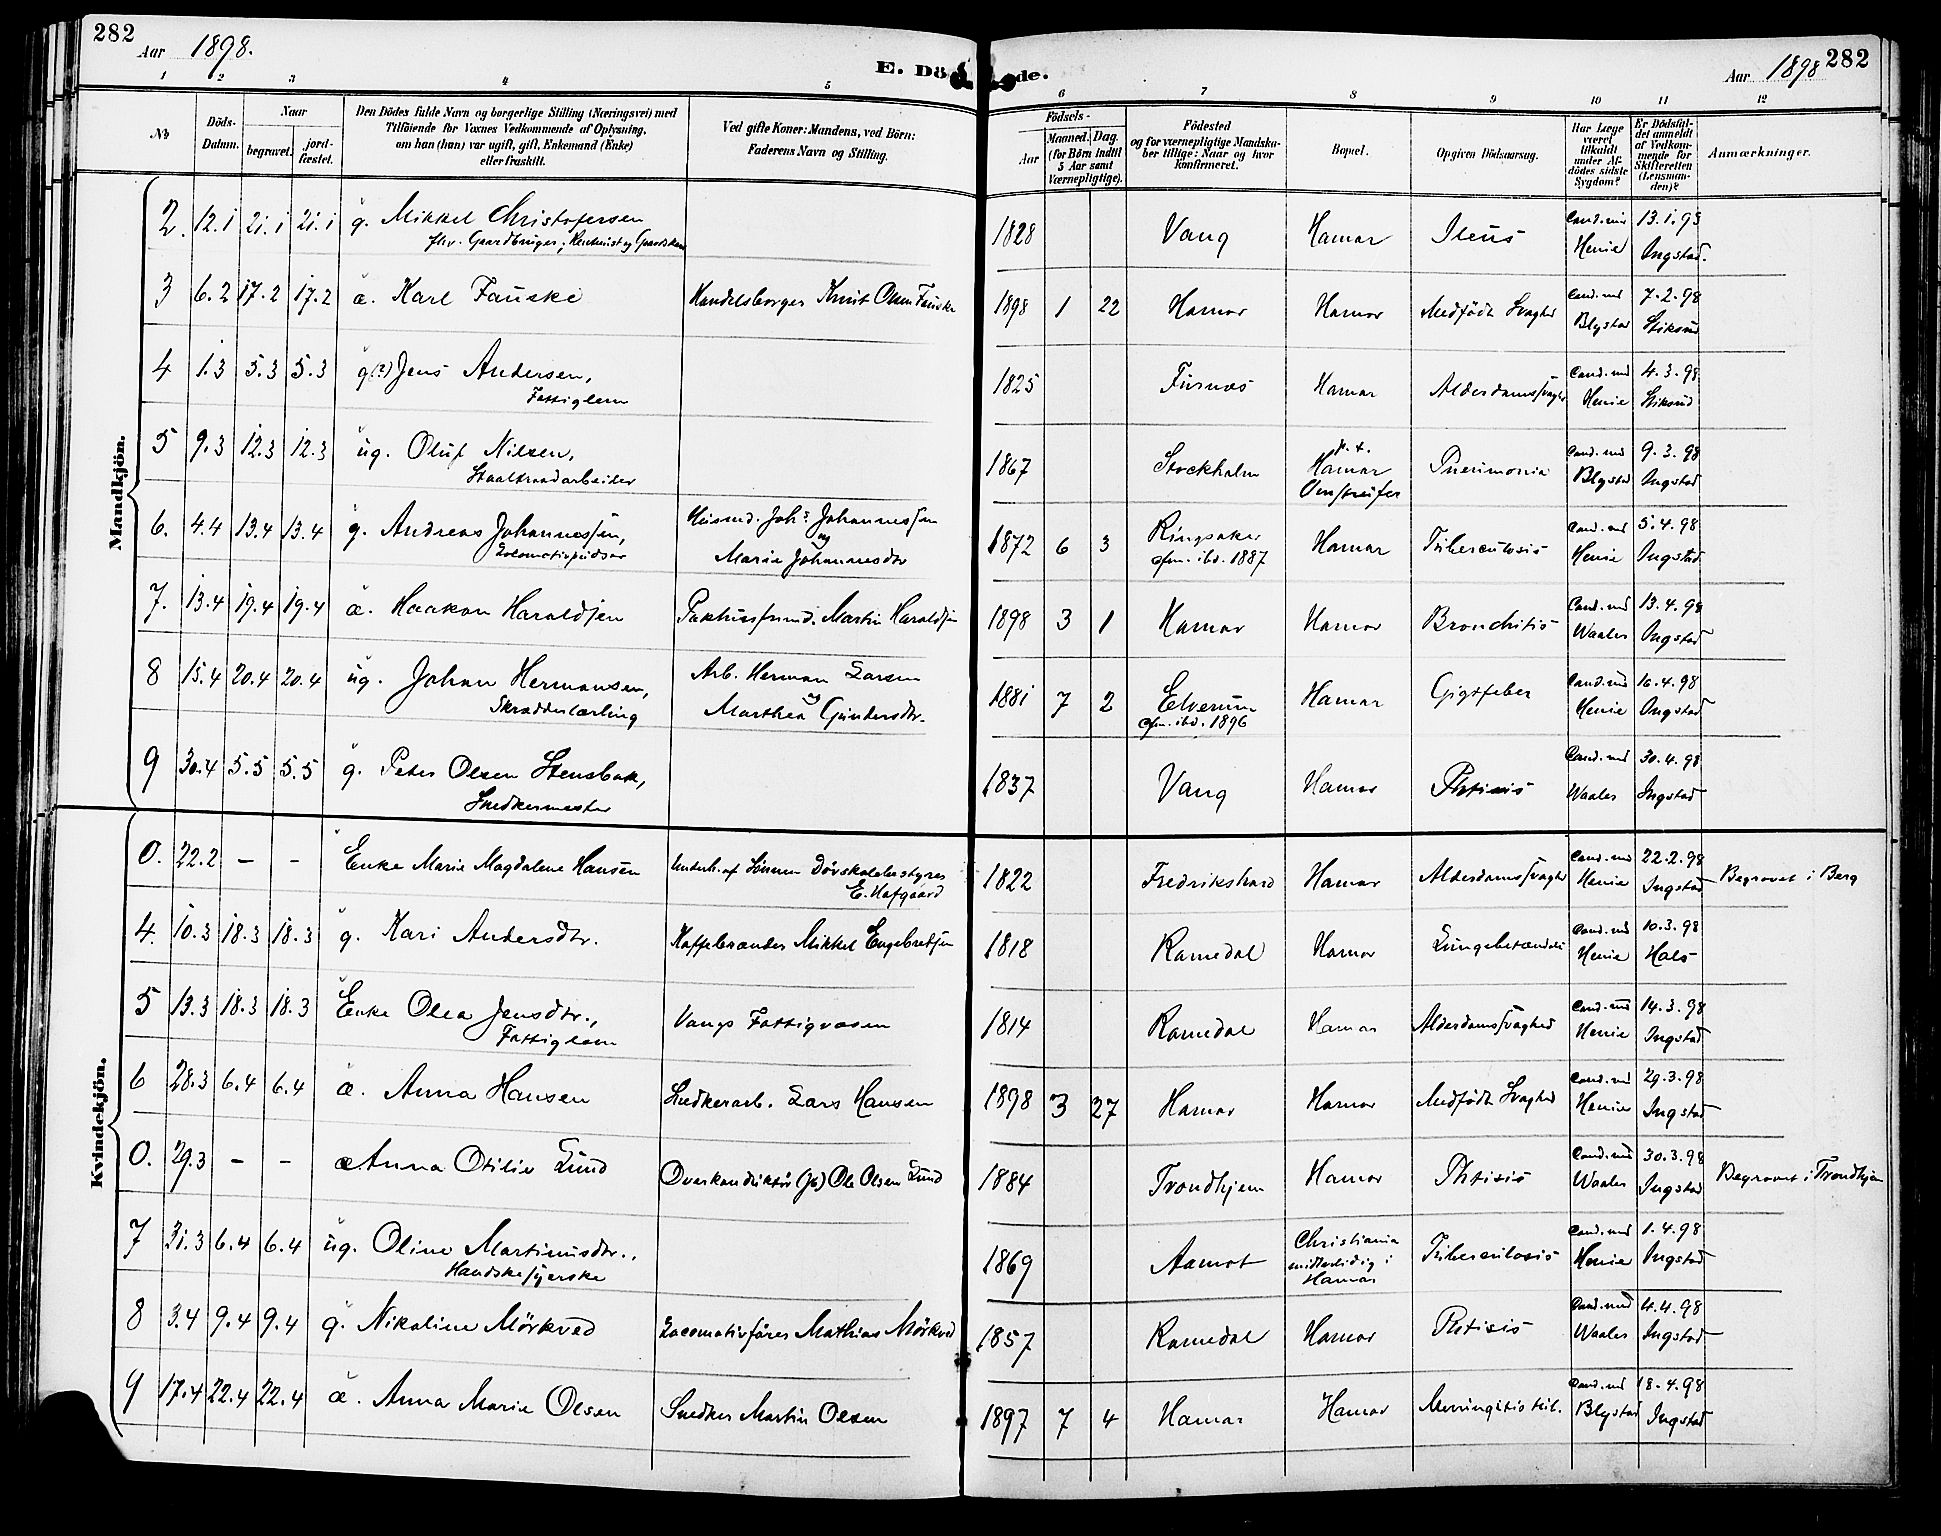 282
Aar 1898.
E. Dö de.
Aar 1898
282
1 2 3 4 5 6 7 8 9 10 11 12
No
Döds-Datum.
Naar
begravet.
jord-fæstet.
Den Dödes fulde Navn og borgerlige Stilling (Næringsvei) med
Tilföiende for Voxnes Vedkommende af Oplysning,
om han (hun) var ugift, gift, Enkemand (Enke)
eller fraskilt.
Ved gifte Koner: Mandens, ved Börn:
Faderens Navn og Stilling.
Födsels-
Aar
Maaned. Dag.
(for Börn indtil
5 Aar samt
Værnepligtige).
Födested
og for værnepligtige Mandska-
ber tillige: Naar og hvor
konfirmeret.
Bopæl.
Opgiven Dödsaarsag.
Har Læge
været
tilkaldt
under Af-
dödes sidste
Sygdom?
Er Dödsfal-
det anmeldt
af Vedkom-
mende for
Skifteretten
(Lensman-
den)?
Anmærkninger.
Mandkjön.
2. 12.1 21.1 21.1 g. Mikkel Christofersen 1828 Vang Hamar Ileus Cand. med Henie 13.1.98 Ingstad.
fhv. Gaardbruger,
3 6.2 17.2 17.2 æ. Karl Fauske Handelsborger Knut Olsen Fauske 1898 1 22 Hamar Hamar Medfödt Svaghed Cand. med Blystad 7.2.98 Stiksrud
4 1.3 5.3 5.3 g(?) Jens Andersen, 1825 Furnæs Hamar Alderdomssvaghed Cand. med Henie 4.3.98 Stiksrud
Fattiglem
5 9.3 12.3 12.3 ug. Oluf Nilsen, 1867 Stockholm p.t. Hamar Omstreifer Pneumonia Cand. med Blystad 9.3.98 Ingstad
Staaltraadarbeider
6. 4.4 13.4 13.4 g. Andreas Johannessen, Husmd. Johs. Johannessen og 1872 6 3 Ringsaker Hamar Tuberculosis Cand. med Henie 5.4.98 Ingstad
Locomotivpudser Marie Johannesdtr cfm. ibd. 1887
7. 13.4 19.4 19.4 æ. Haakon Haraldsen Pakhusformd. Martin Haraldsen 1898 3 1 Hamar Hamar Bronchitis Cand. med Waaler 13.4.98 Ingstad
8 15.4 20.4 20.4 ug. Johan Hermansen, Arb. Herman Larsen og 1881 7 2 Elverum Hamar Gigtfeber Cand. med Henie 16.4.98 Ingstad
Skrædderlærling Marthea Gundersdtr. cfm. ibd. 1896
9 30.4 5.5 5.5 g. Peter Olsen Stensbak, 1837 Vang Hamar Phtisis Cand. med Waaler 30.4.98 Ingstad
Snedkermester
Kvindekjön.
0. 22.2 – – Enke Marie Magdalene Hansen Underh. af Sönnen Dövskolebestyrer 1822 Fredrikshald Hamar Alderdomssvaghed Cand. med Henie 22.2.98 Ingstad Begravet i Berg
E. Hofgaard
4. 10.3 18.3 18.3 g. Kari Andersdtr. Kaffebrænder Mikkel Engebretsen 1818 Romedal Hamar Lungebetændelse Cand. med Henie 10.3.98 Hals
5 13.3 18.3 18.3 Enke Olea Jensdtr., Vangs Fattigvæsen 1814 Romedal Hamar Alderdomssvaghed Cand. med Henie 14.3.98 Ingstad
Fattiglem
6 28.3 6.4 6.4 æ. Anna Hansen Snedkerarb. Lars Hansen 1898 3 27 Hamar Hamar Medfödt Svaghed Cand. med Henie 29.3.98 Ingstad
0. 29.3 – – æ Anna Otilie Lund Overkonduktör (Jb) Ole Olsen Lund 1884 Trondhjem Hamar Phtisis Cand. med Waaler 30.3.98 Ingstad Begravet i Trondhjem
7 31.3 6.4 6.4 ug. Oline Martinusdtr., 1869 Aamot Christiania midlertidig i Hamar Tuberculosis Cand. med Henie 1.4.98 Ingstad
Handskesyerske
8 3.4 9.4 9.4 g. Nikoline Mörkved Locomotivförer Mathias Mörkved 1857 Romedal Hamar Phtisis Cand. med Waaler 4.4.98 Ingstad
9 17.4 22.4 22.4 æ. Anna Marie Olsen Snedker Martin Olsen 1897 7 4 Hamar Hamar Menningitis tub. Cand. med Blystad 18.4.98 Ingstad